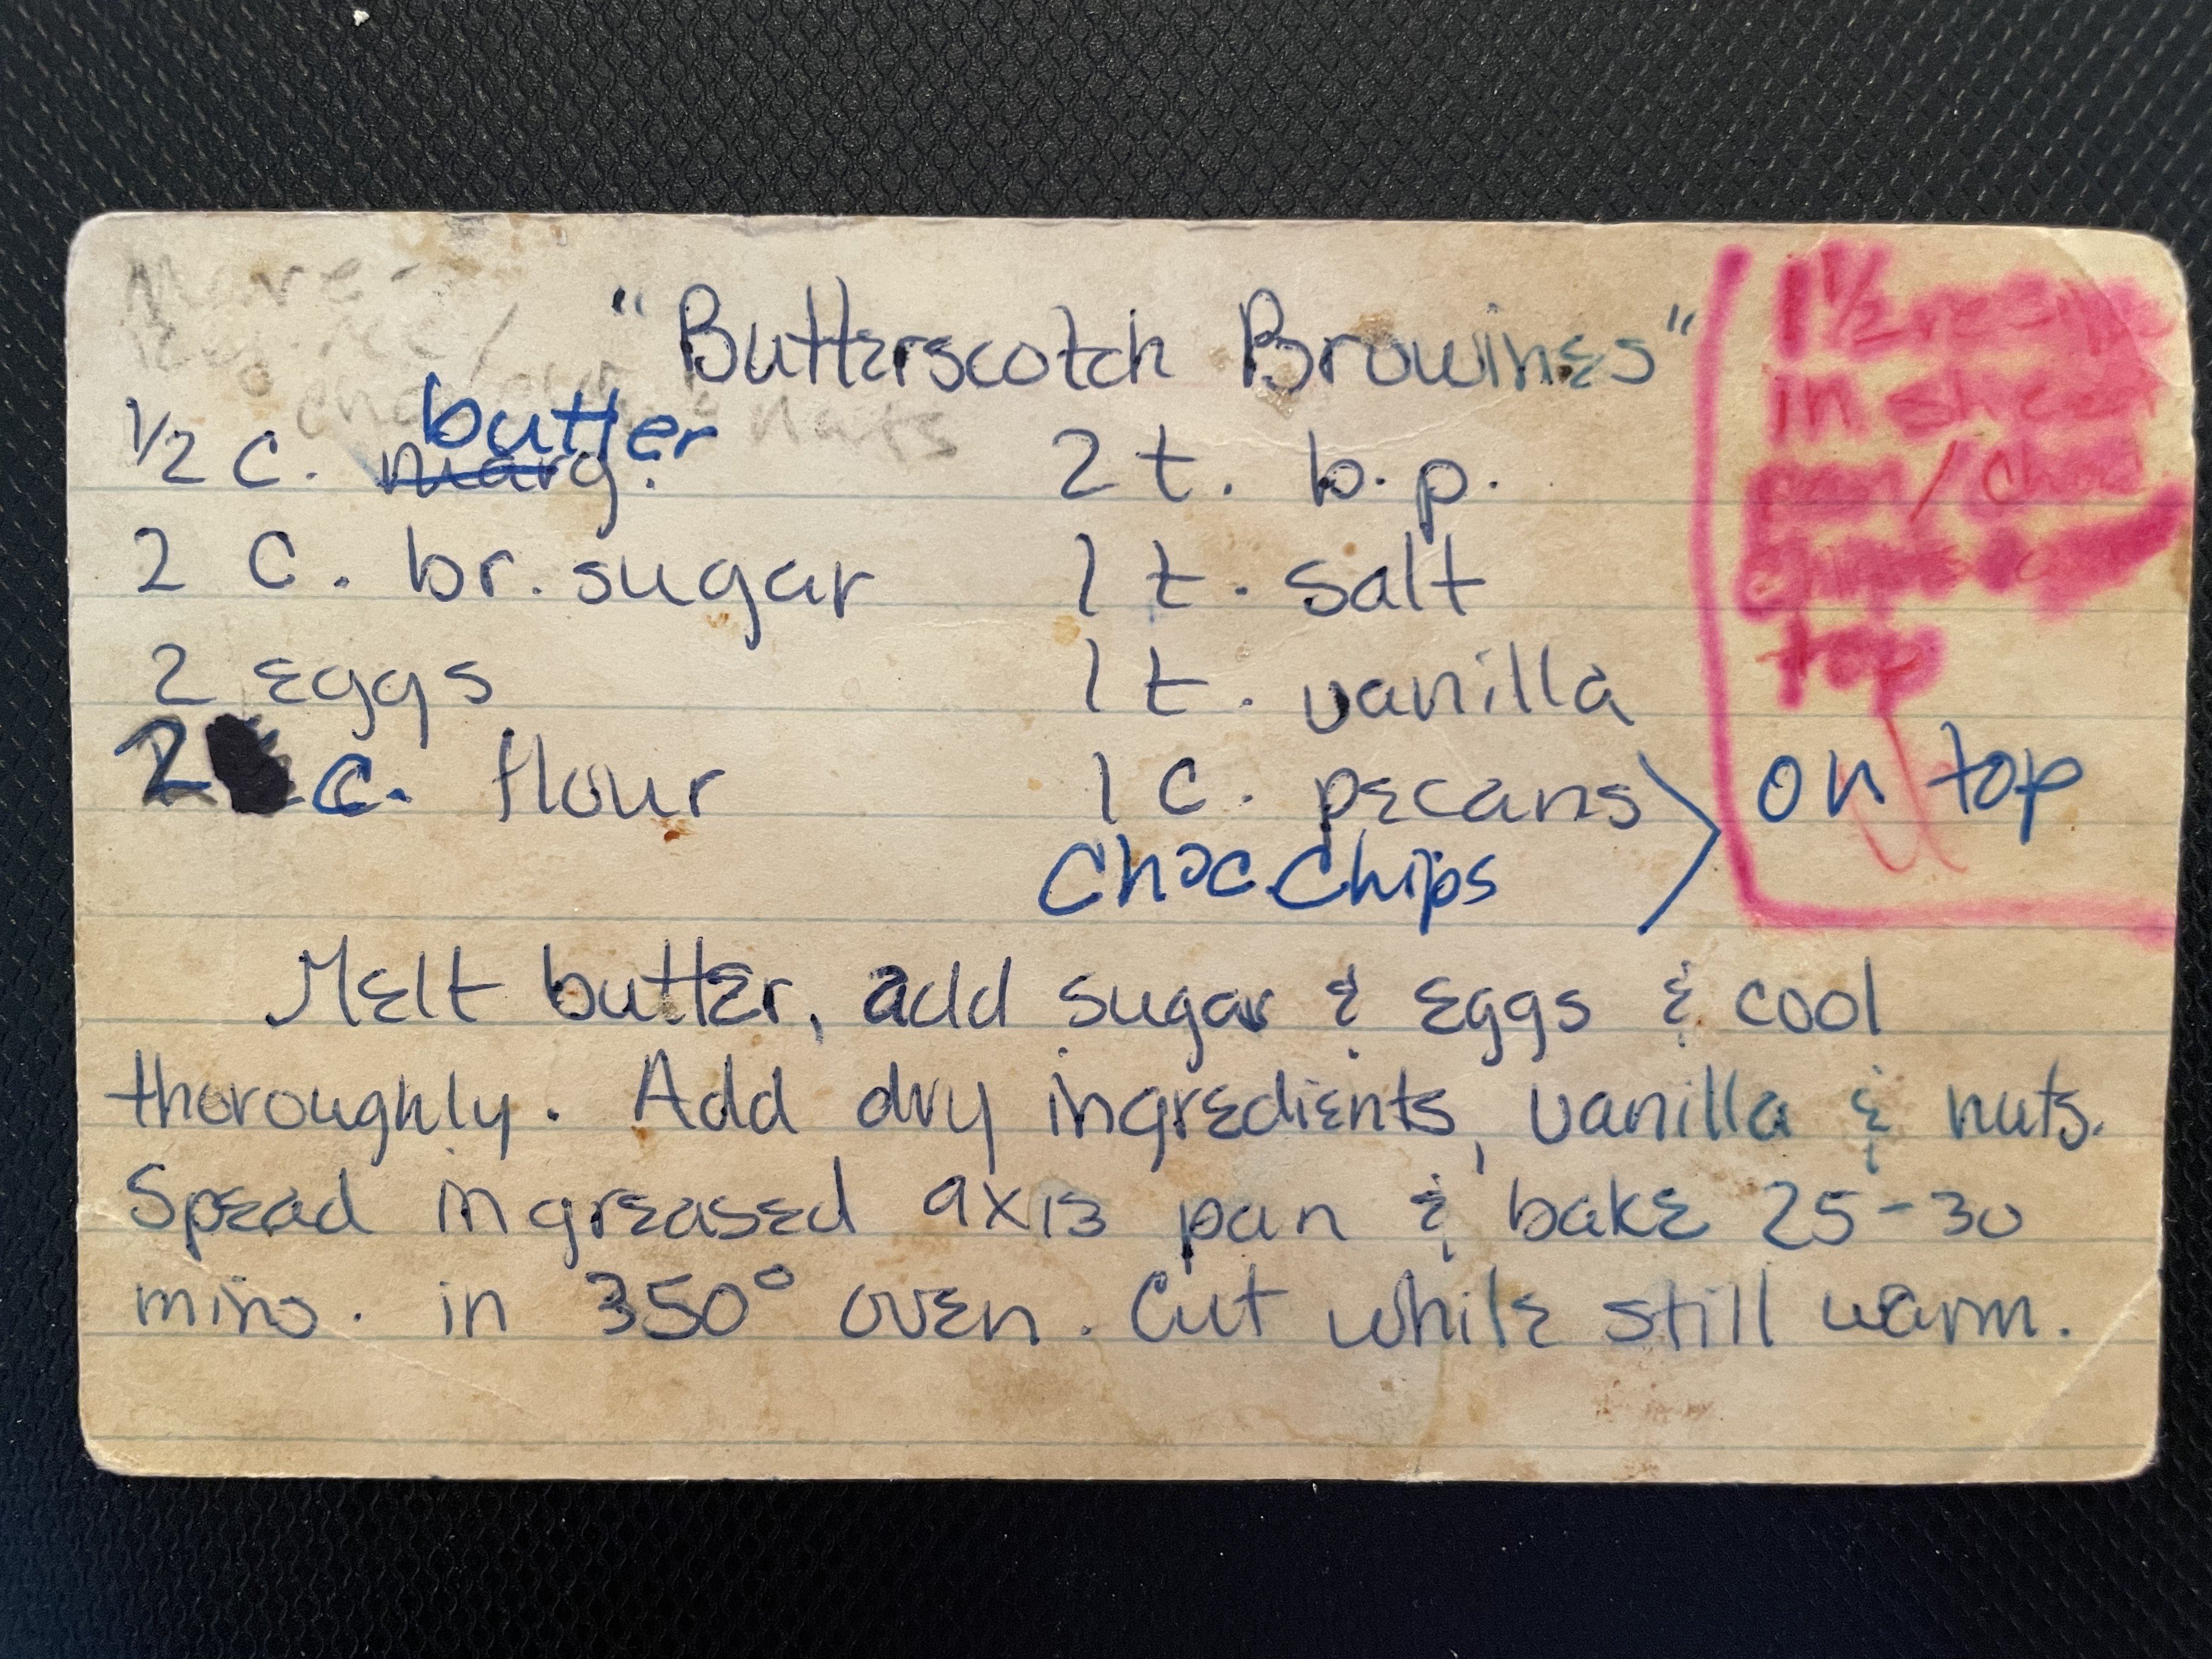 "Butterscotch Browines"
1/2 C. marg. butter
2 C. br. sugar
2 eggs
2 c. flour
2 t. b.p.
1 t. salt
1 t. vanilla
1 c. pecans
Choc Chips
on top
1 1/2
in sheet
pan / choc
chips
top
Melt butter, add sugar & eggs & cool
thoroughly. Add dry ingredients, vanilla & nuts.
Spead in greased 9x13 pan & bake 25-30
mins. in 350° oven. Cut while still warm.
nuts